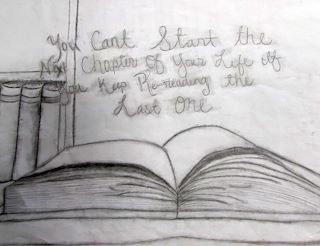 You Cant Start the
Next Chapter of Your Life if
You Keep Re-reading the
Last One